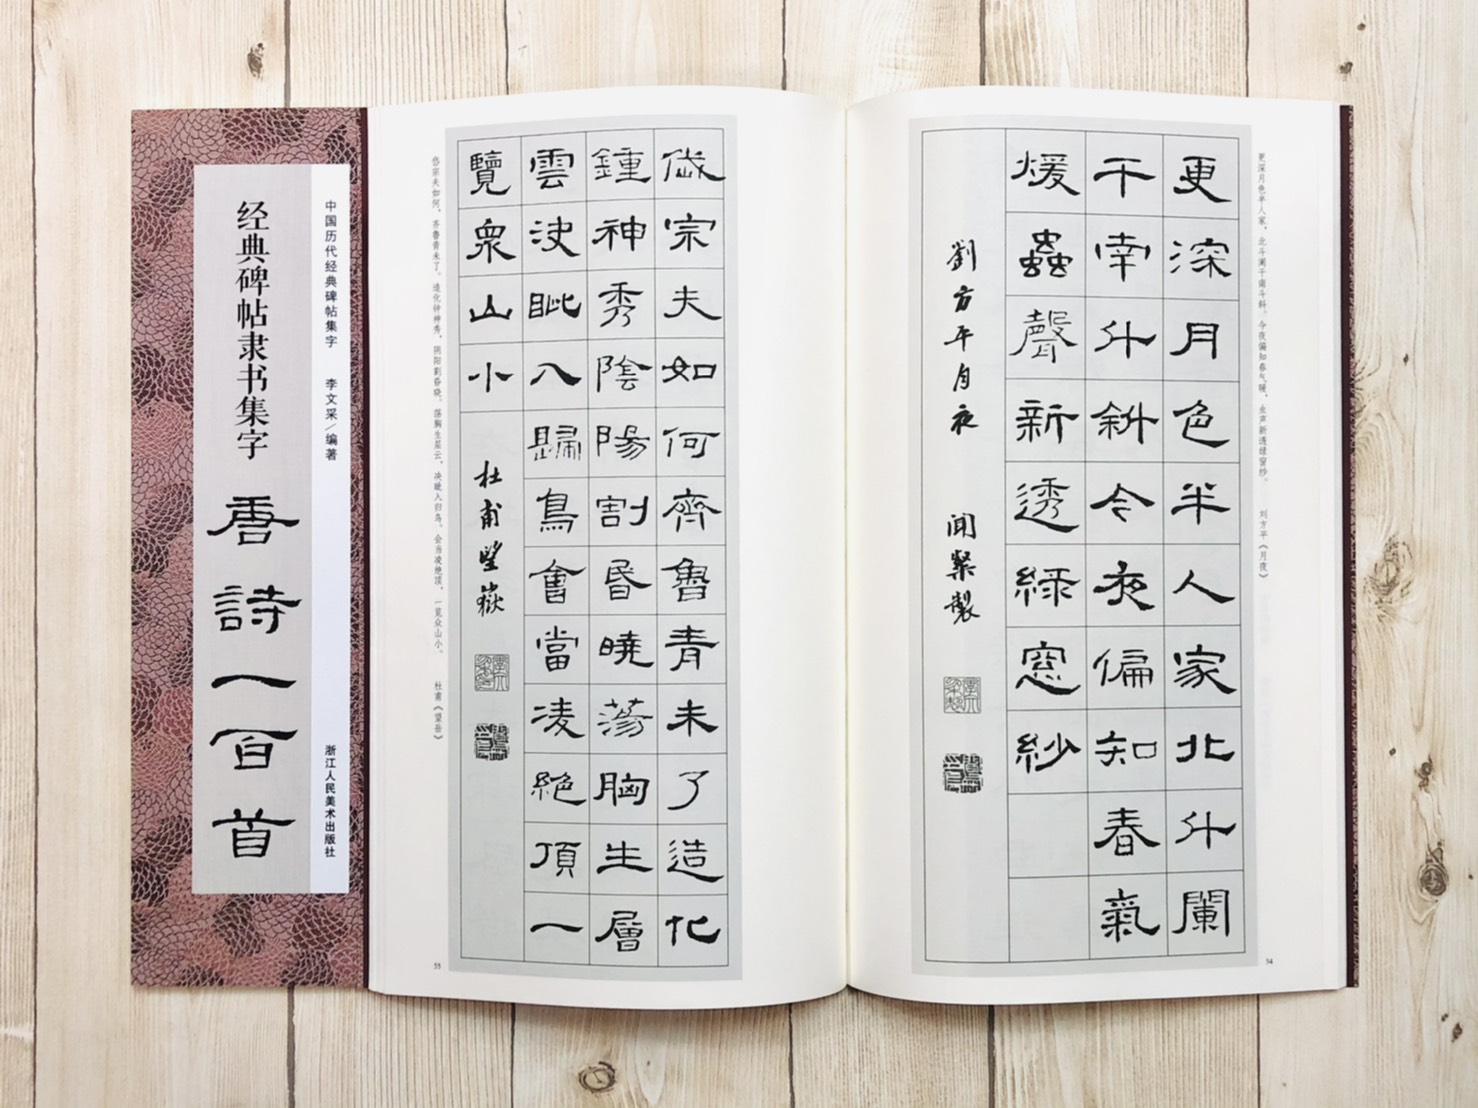 更深月色半人家，北斗阑干南斗斜。今夜偏知春气暖，虫声新透绿窗纱。 刘方平《月夜》
更深月色半人家北斗闌
干南斗斜今夜偏知春氣
煖蟲聲新透綠窓紗
劉方平月夜
54
岱宗夫如何齊魯青未了造化
鍾神秀陰陽割昏曉蕩胸生層
雲決眦入歸鳥會當凌絕頂一
覽衆山小
杜甫望嶽
岱宗夫如何，齐鲁青未了。造化钟神秀，阴阳割昏晓。荡胸生层云，决眦入归鸟。会当凌绝顶，一览众山小。 杜甫《望岳》
55
中国历代经典碑帖集字 李文采/编著 浙江人民美术出版社
经典碑帖隶书集字 唐詩一百首